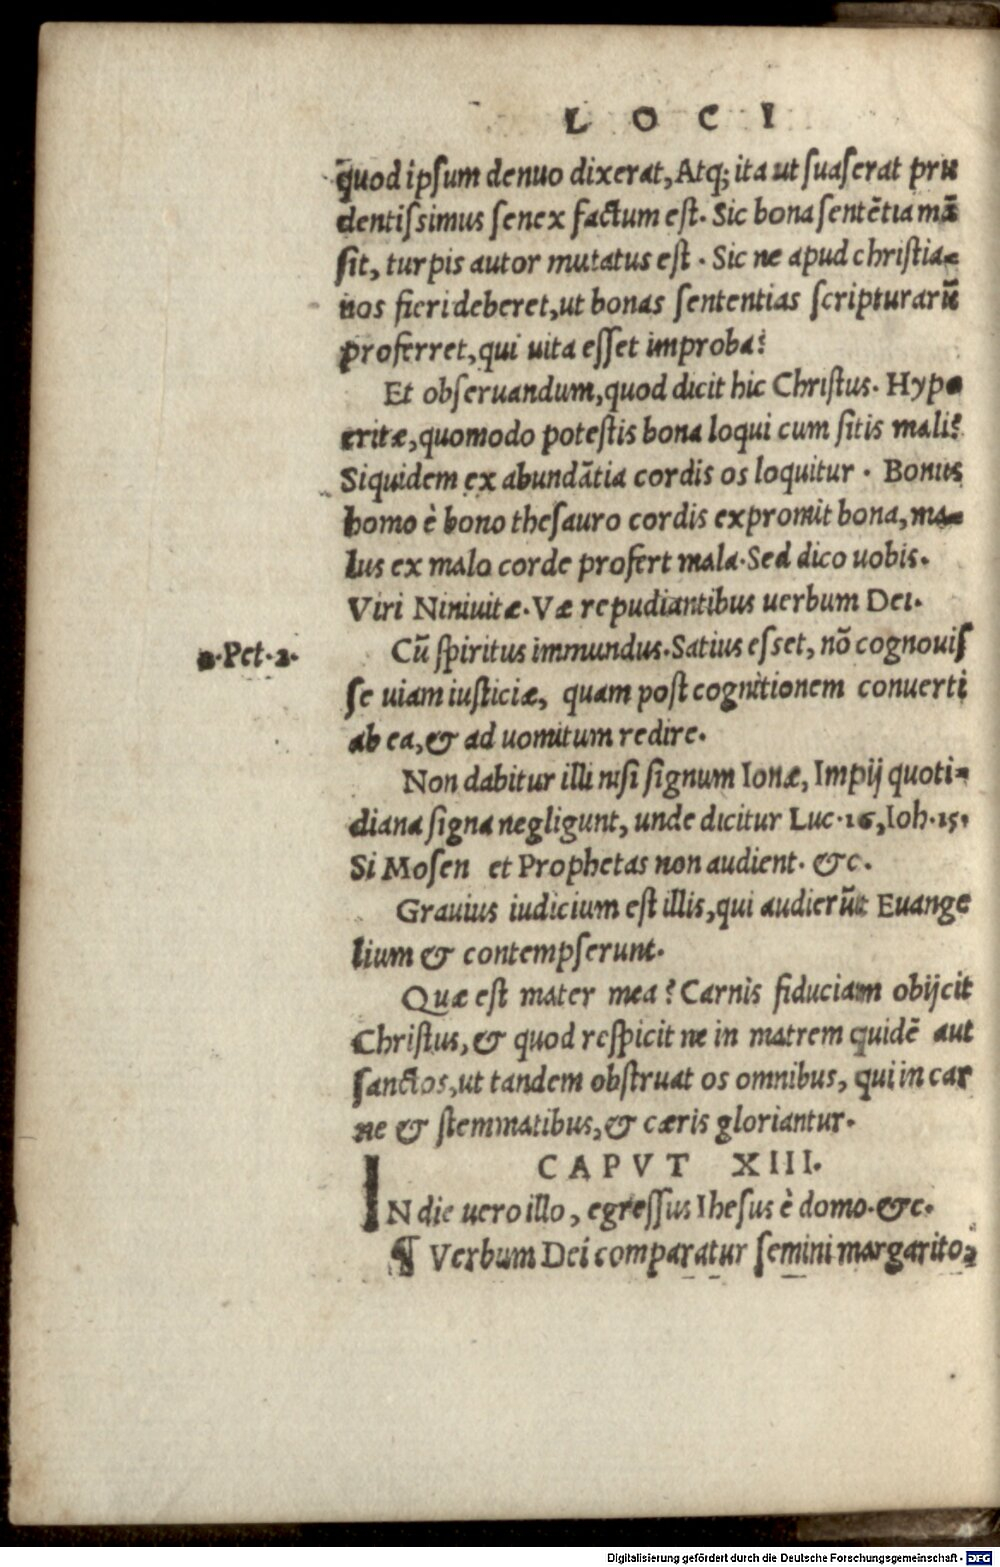 LOCI
quod ipsum denuo dixerat, Atq; ita ut suaserat pru
dentissimus senex factum est. Sic bona sentētia mā
sit, turpis autor mutatus est. Sic ne apud christia-
nos fieri deberet, ut bonas sententias scripturarū
proferret, qui uita esset improba?
Et obseruandum, quod dicit hic Christus. Hypo
critæ, quomodo potestis bona loqui cum sitis mali?
Siquidem ex abundātia cordis os loquitur. Bonus
homo è bono thesauro cordis expromit bona, ma-
lus ex malo corde profert mala. Sed dico uobis.
Viri Niniuitæ. Væ repudiantibus uerbum Dei.
2. Pet. 2.
Cū spiritus immundus. Satius esset, nō cognouis
se uiam iusticiæ, quam post cognitionem conuerti
ab ea, & ad uomitum redire.
Non dabitur illi nisi signum Ionæ, Impij quoti-
diana signa negligunt, unde dicitur Luc. 16, Ioh. 15.
Si Mosen et Prophetas non audient. &c.
Grauius iudicium est illis, qui audierūt Euange
lium & contempserunt.
Quæ est mater mea? Carnis fiduciam obijcit
Christus, & quod respicit ne in matrem quidē aut
sanctos, ut tandem obstruat os omnibus, qui in car
ne & stemmatibus, & cæris gloriantur.
CAPVT XIII.
IN die uero illo, egressus Ihesus è domo. &c.
¶ Verbum Dei comparatur semini margarito,
Digitalisierung gefördert durch die Deutsche Forschungsgemeinschaft - DFG